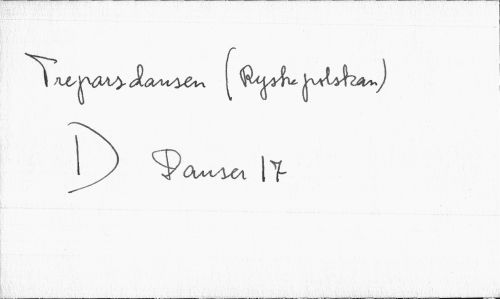 Treparsdansen (Ryskepolskan)
D Danser 17